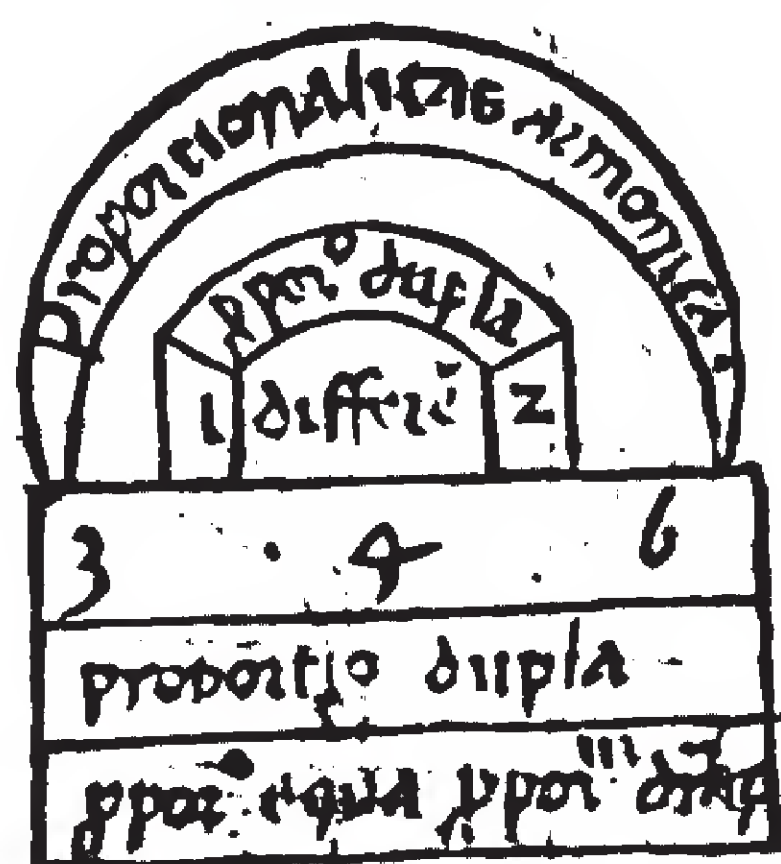 proportionalitas armonica
ꝓporº dupla
1 differē 2
3 · 4 · 6
proportio dupla
ꝓpor equa ꝓpor